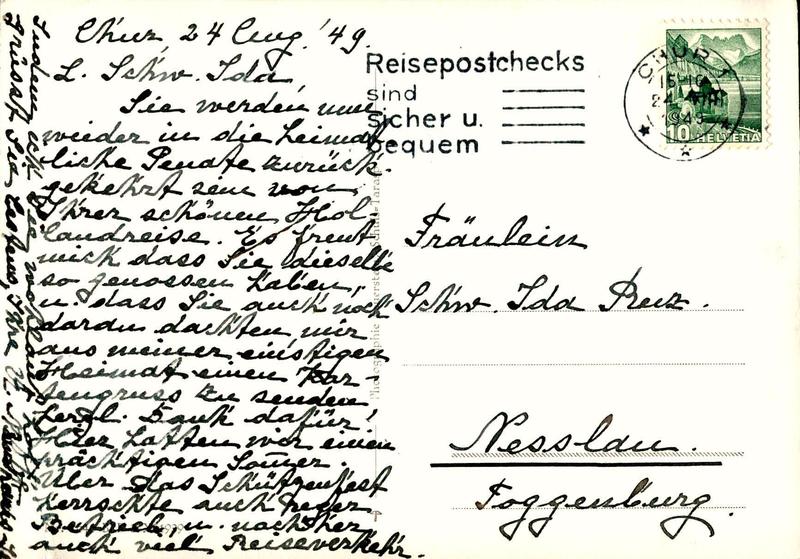 Chur 24 Aug. '49.
L. Schw. Ida
Sie werden nun
wieder in die heimat
liche Penate zurück
gekehrt sein von
Ihrer schönen Hol
landreise. Es freut
mich dass Sie dieselbe
so genossen haben,
u. dass Sie auch noch
daran dachten mir
aus meiner einstigen
Heimat einen Kar-
tengruss zu senden
herzl. Dank dafür!
Hier hatten wir einen
prächtigen Sommer.
Über das Schützenfest
herrschte auch reger
Betrieb u. nachher
auch viel Reiseverkehr.
Indem ich Sie wohlauf hoffe
grüsst Sie bestens, Ihre
Reisepostchecks
sind
sicher u.
bequem
CHUR 1
24. VIII
1949
10 HELVETIA
Fräulein
Schw. Ida
Nesslau.
Toggenburg.